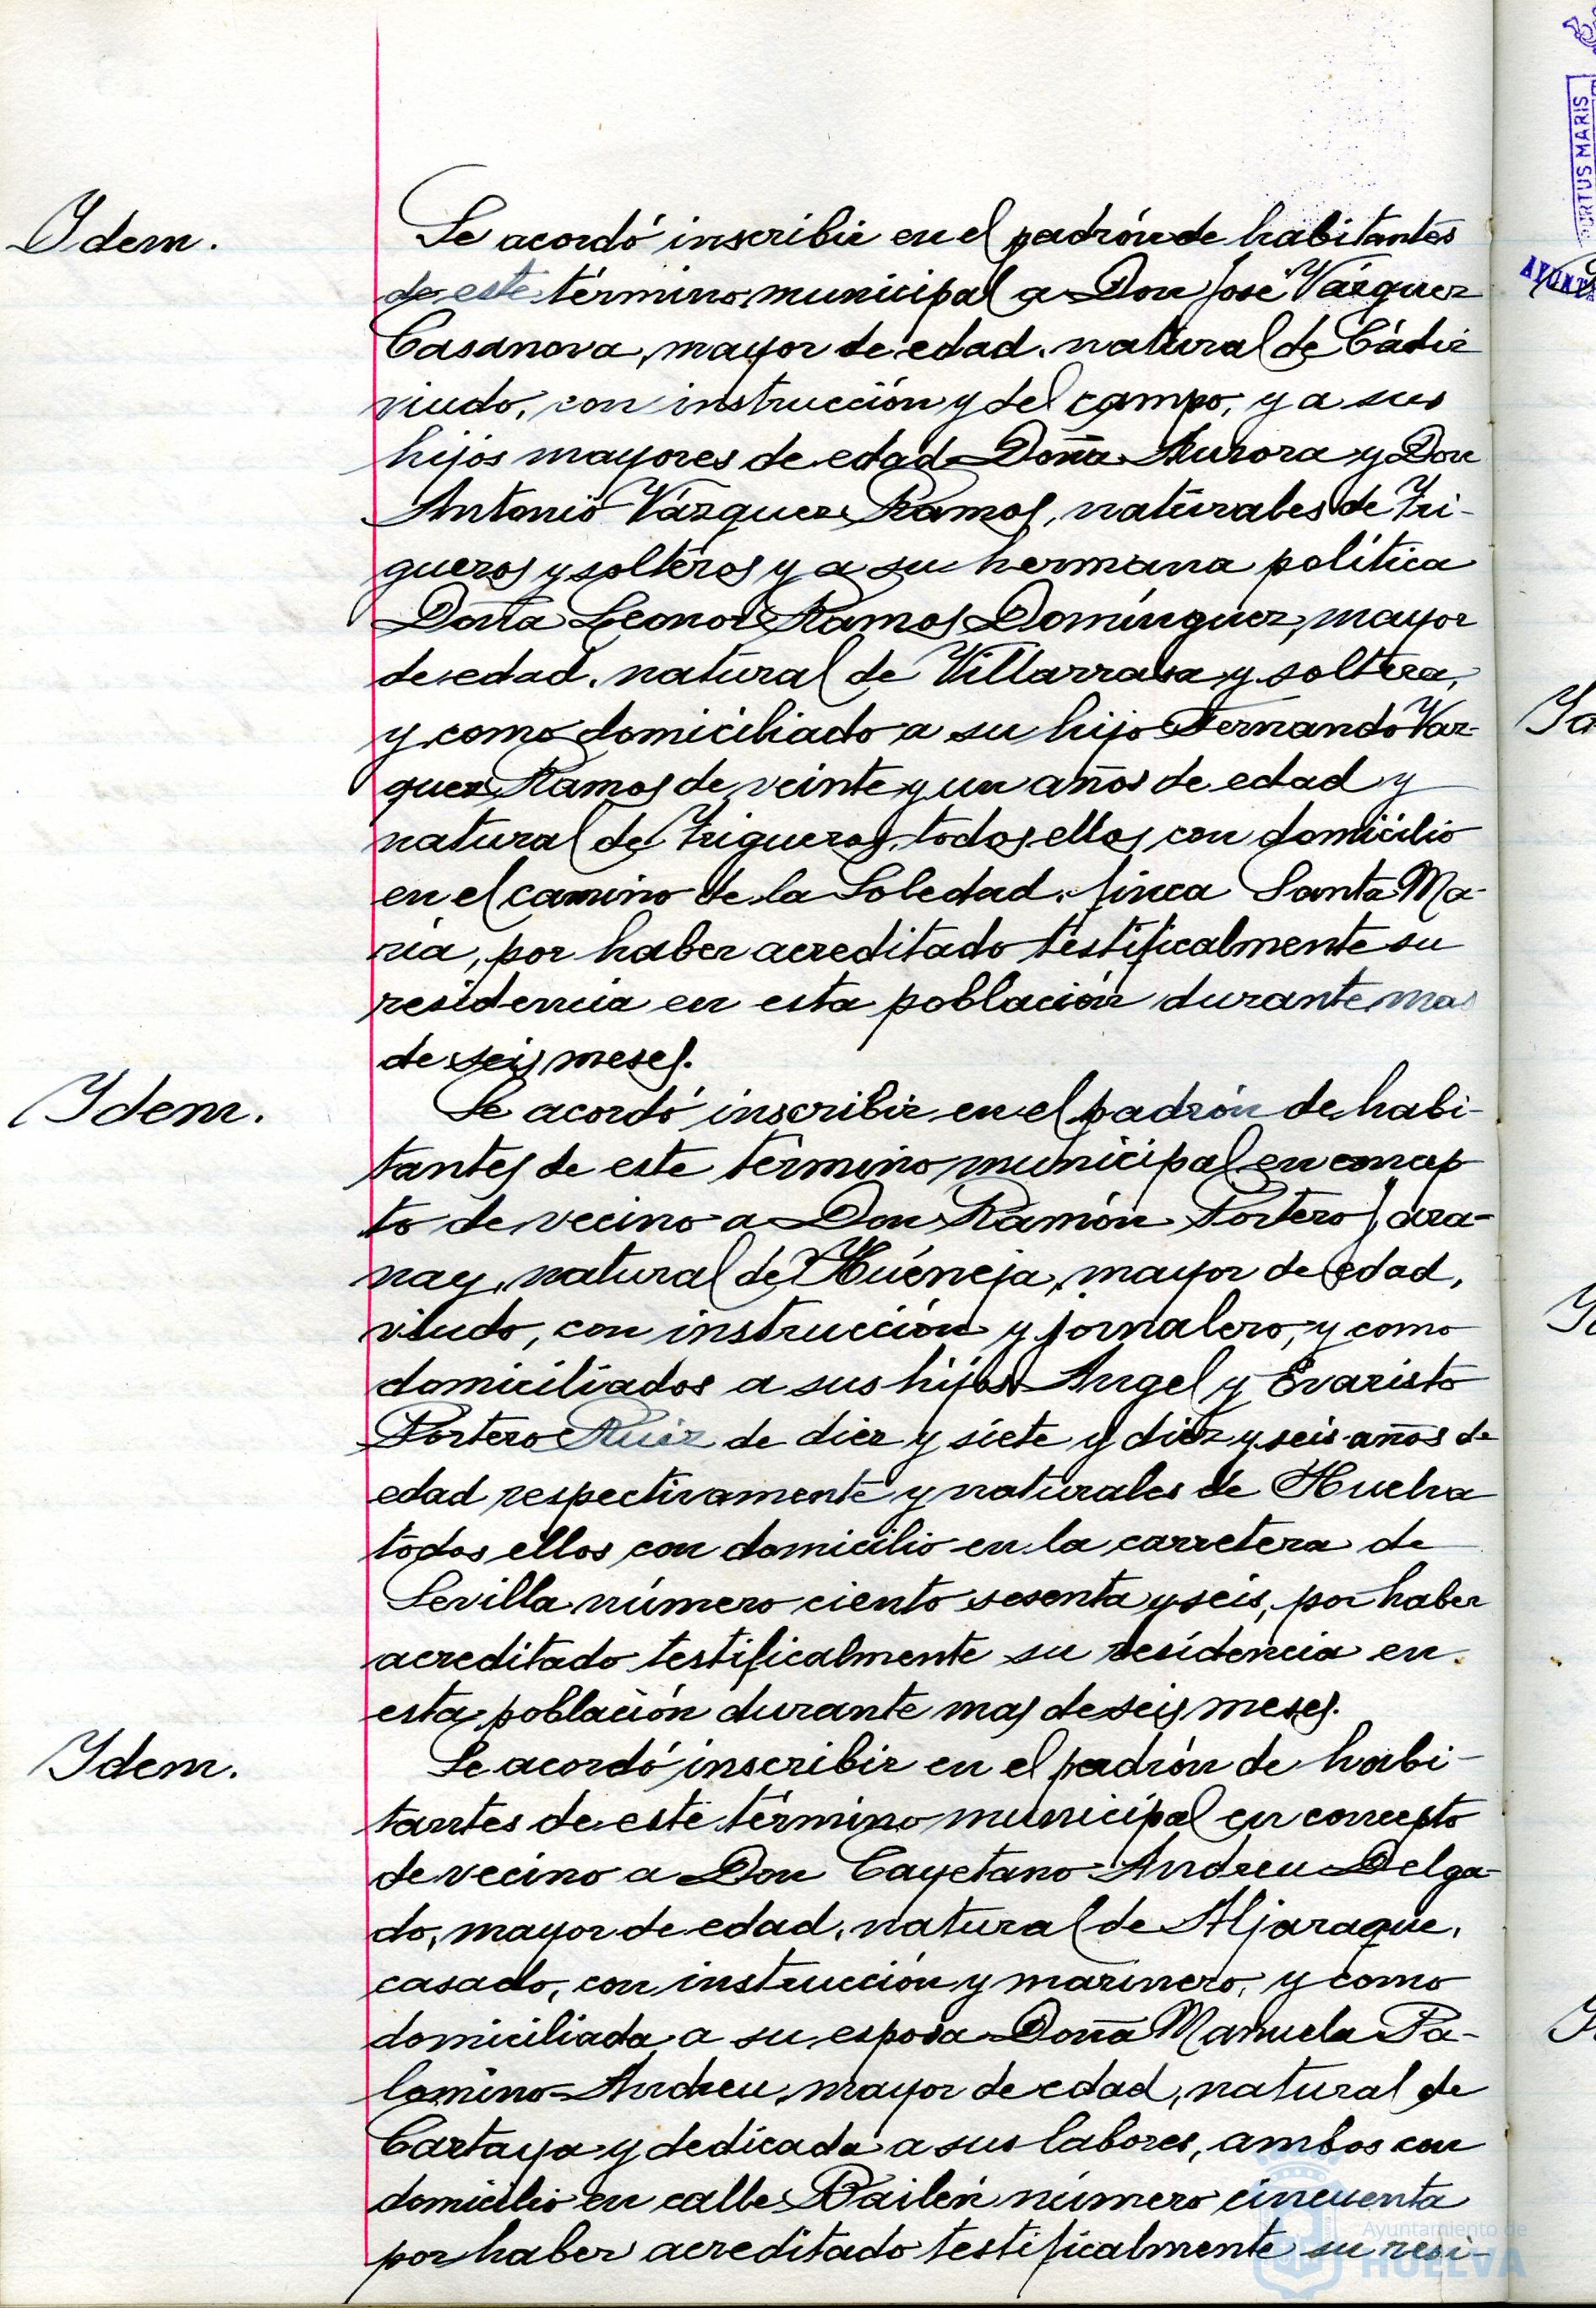 Idem.
Se acordó inscribir en el padrón de habitantes
de este término municipal a Don José Vázquez
Casanova, mayor de edad, natural de Cádiz
viudo, con instrucción y del campo, y a sus
hijos mayores de edad Doña Aurora y Don
Antonio Vázquez Ramos, naturales de Tri-
gueros y solteros y a su hermana política
Doña Leonor Ramos Domínguez, mayor
de edad, natural de Villarrasa y soltera,
y como domiciliado a su hijo Fernando Váz-
quez Ramos de veinte y un años de edad y
natural de Trigueros, todos ellos con domicilio
en el camino de la Soledad, finca Santa Ma-
ría, por haber acreditado testificalmente su
residencia en esta población durante mas
de seis meses.
Idem.
Se acordó inscribir en el padrón de habi-
tantes de este término municipal en concep
to de vecino a Don Ramón Portero
natural de Huéneja, mayor de edad,
viudo, con instrucción y jornalero, y como
domiciliados a sus hijos Angel y Evaristo
Portero Ruiz de diez y siete y diez y seis años de
edad respectivamente y naturales de Huelva
todos ellos con domicilio en la carretera de
Sevilla número ciento sesenta y seis, por haber
acreditado testificalmente su residencia en
esta población durante mas de seis meses.
Idem.
Se acordó inscribir en el padrón de habi-
tantes de este término municipal en concepto
de vecino a Don Cayetano Andreu Delga-
do, mayor de edad, natural de Aljaraque,
casado, con instrucción y marinero, y como
domiciliada a su esposa Doña Manuela Pa-
lomino Andreu, mayor de edad, natural de
Cartaya y dedicada a sus labores, ambos con
domicilio en calle Bailén número cincuenta
por haber acreditado testificalmente su resi-
PORTUS MARIS
Ayuntamiento de
HUELVA